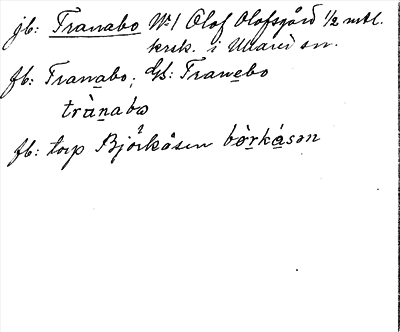 jb: Tranabo No 1 Olof Olofsgård 1/2 mtl.
krsk. i Utard sn.
fb: Tranabo; Gk: Tranebo
trànabo
fb: torp Björkåsen bòrkásən